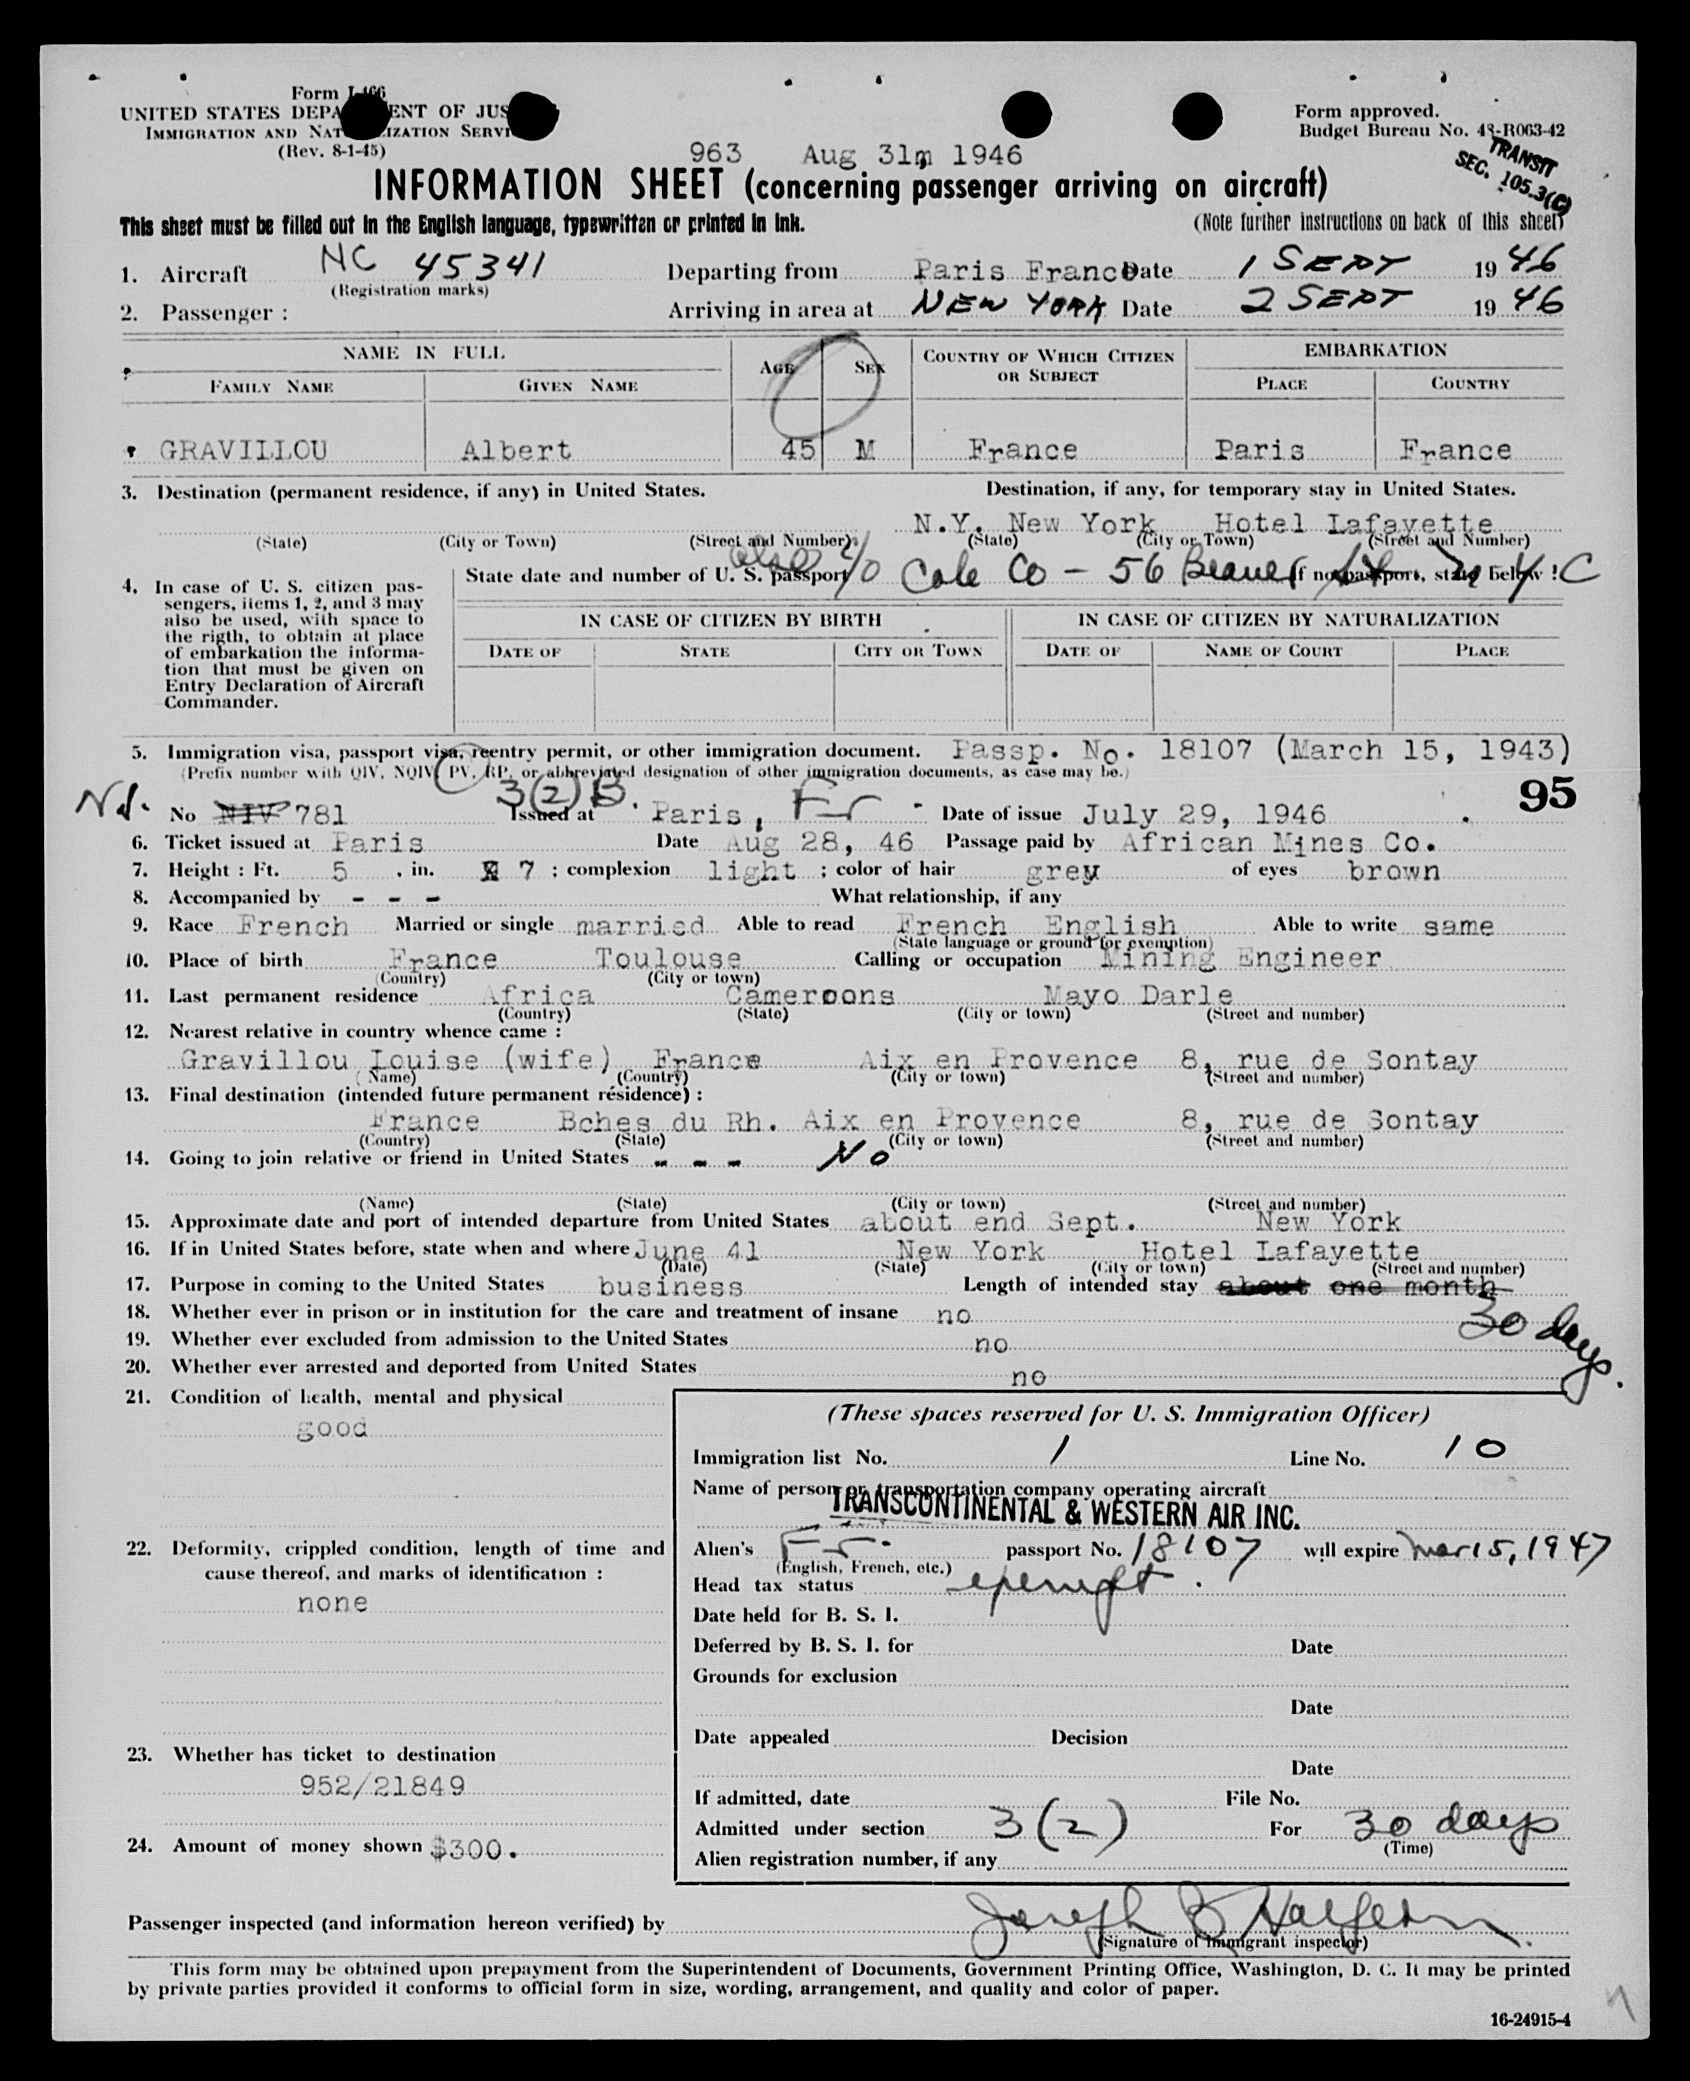 Form I-466
UNITED STATES DEPARTMENT OF JUSTICE
IMMIGRATION AND NATURALIZATION SERVICE
(Rev. 8-1-45)
Form approved.
Budget Bureau No. 43-R063-42
TRANSIT
SEC. 105.3(C)
963 Aug 31, 1946
INFORMATION SHEET (concerning passenger arriving on aircraft)
This sheet must be filled out in the English language, typewritten or printed in ink. (Note further instructions on back of this sheet)
1. Aircraft NC 45341 Departing from Paris France Date 1 SEPT 1946
(Registration marks)
2. Passenger : Arriving in area at NEW YORK Date 2 SEPT 1946
NAME IN FULL AGE SEX COUNTRY OF WHICH CITIZEN OR SUBJECT EMBARKATION
FAMILY NAME GIVEN NAME PLACE COUNTRY
GRAVILLOU Albert 45 M France Paris France
3. Destination (permanent residence, if any) in United States. Destination, if any, for temporary stay in United States.
N.Y. New York Hotel Lafayette
(State) (City or Town) (Street and Number) (State) (City or Town) (Street and Number)
also c/o Cale Co - 56 Beaver St N Y C
4. In case of U. S. citizen pas- State date and number of U. S. passport If no passport, state below :
sengers, items 1, 2, and 3 may
also be used, with space to
the rigth, to obtain at place
of embarkation the informa-
tion that must be given on
Entry Declaration of Aircraft
Commander.
IN CASE OF CITIZEN BY BIRTH IN CASE OF CITIZEN BY NATURALIZATION
DATE OF STATE CITY OR TOWN DATE OF NAME OF COURT PLACE
5. Immigration visa, passport visa, reentry permit, or other immigration document. Passp. No. 18107 (March 15, 1943)
(Prefix number with QIV, NQIV, PV, RP, or abbreviated designation of other immigration documents, as case may be.)
3(2)B. 95
No NIV 781 Issued at Paris, Fr Date of issue July 29, 1946
6. Ticket issued at Paris Date Aug 28, 46 Passage paid by African Mines Co.
7. Height : Ft. 5 , in. 7 ; complexion light ; color of hair grey of eyes brown
8. Accompanied by - - - What relationship, if any
9. Race French Married or single married Able to read French English Able to write same
(State language or ground for exemption)
10. Place of birth France Toulouse Calling or occupation Mining Engineer
(Country) (City or town)
11. Last permanent residence Africa Cameroons Mayo Darle
(Country) (State) (City or town) (Street and number)
12. Nearest relative in country whence came :
Gravillou Louise (wife) France Aix en Provence 8, rue de Sontay
(Name) (Country) (City or town) (Street and number)
13. Final destination (intended future permanent résidence) :
France Bches du Rh. Aix en Provence 8, rue de Sontay
(Country) (State) (City or town) (Street and number)
14. Going to join relative or friend in United States - - - No
(Name) (State) (City or town) (Street and number)
15. Approximate date and port of intended departure from United States about end Sept. New York
16. If in United States before, state when and where June 41 New York Hotel Lafayette
(Date) (State) (City or town) (Street and number)
17. Purpose in coming to the United States business Length of intended stay about one month
30 days.
18. Whether ever in prison or in institution for the care and treatment of insane no
19. Whether ever excluded from admission to the United States no
20. Whether ever arrested and deported from United States no
21. Condition of health, mental and physical
good
22. Deformity, crippled condition, length of time and
cause thereof, and marks of identification :
none
23. Whether has ticket to destination
952/21849
24. Amount of money shown $300.
(These spaces reserved for U. S. Immigration Officer)
Immigration list No. 1 Line No. 10
Name of person or transportation company operating aircraft
TRANSCONTINENTAL & WESTERN AIR INC.
Alien's Fr. passport No. 18107 will expire Mar 15, 1947
(English, French, etc.)
Head tax status exempt.
Date held for B. S. I.
Deferred by B. S. I. for Date
Grounds for exclusion
Date
Date appealed Decision
Date
If admitted, date File No.
Admitted under section 3(2) For 30 days
(Time)
Alien registration number, if any
Passenger inspected (and information hereon verified) by
(Signature of immigrant inspector)
This form may be obtained upon prepayment from the Superintendent of Documents, Government Printing Office, Washington, D. C. It may be printed
by private parties provided it conforms to official form in size, wording, arrangement, and quality and color of paper.
16-24915-4